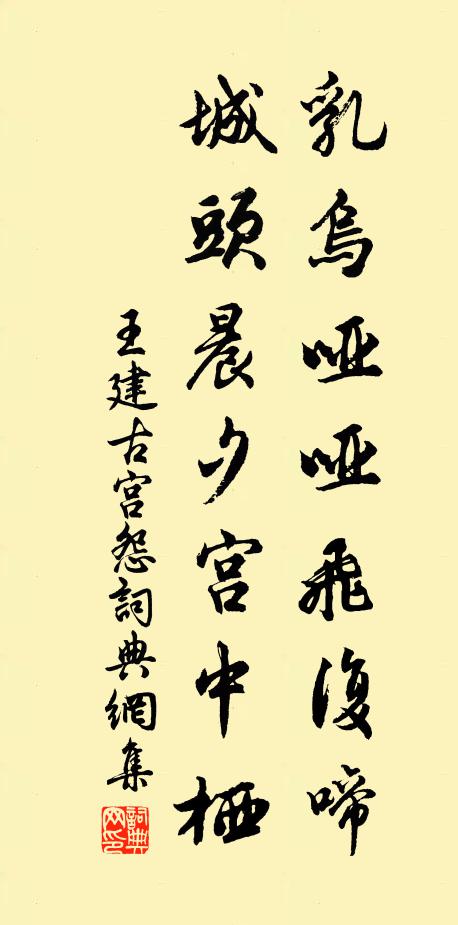 乳烏啞啞飛復啼
城頭晨夕宮中栖
王建古宮怨詞典網集
詞典
网印